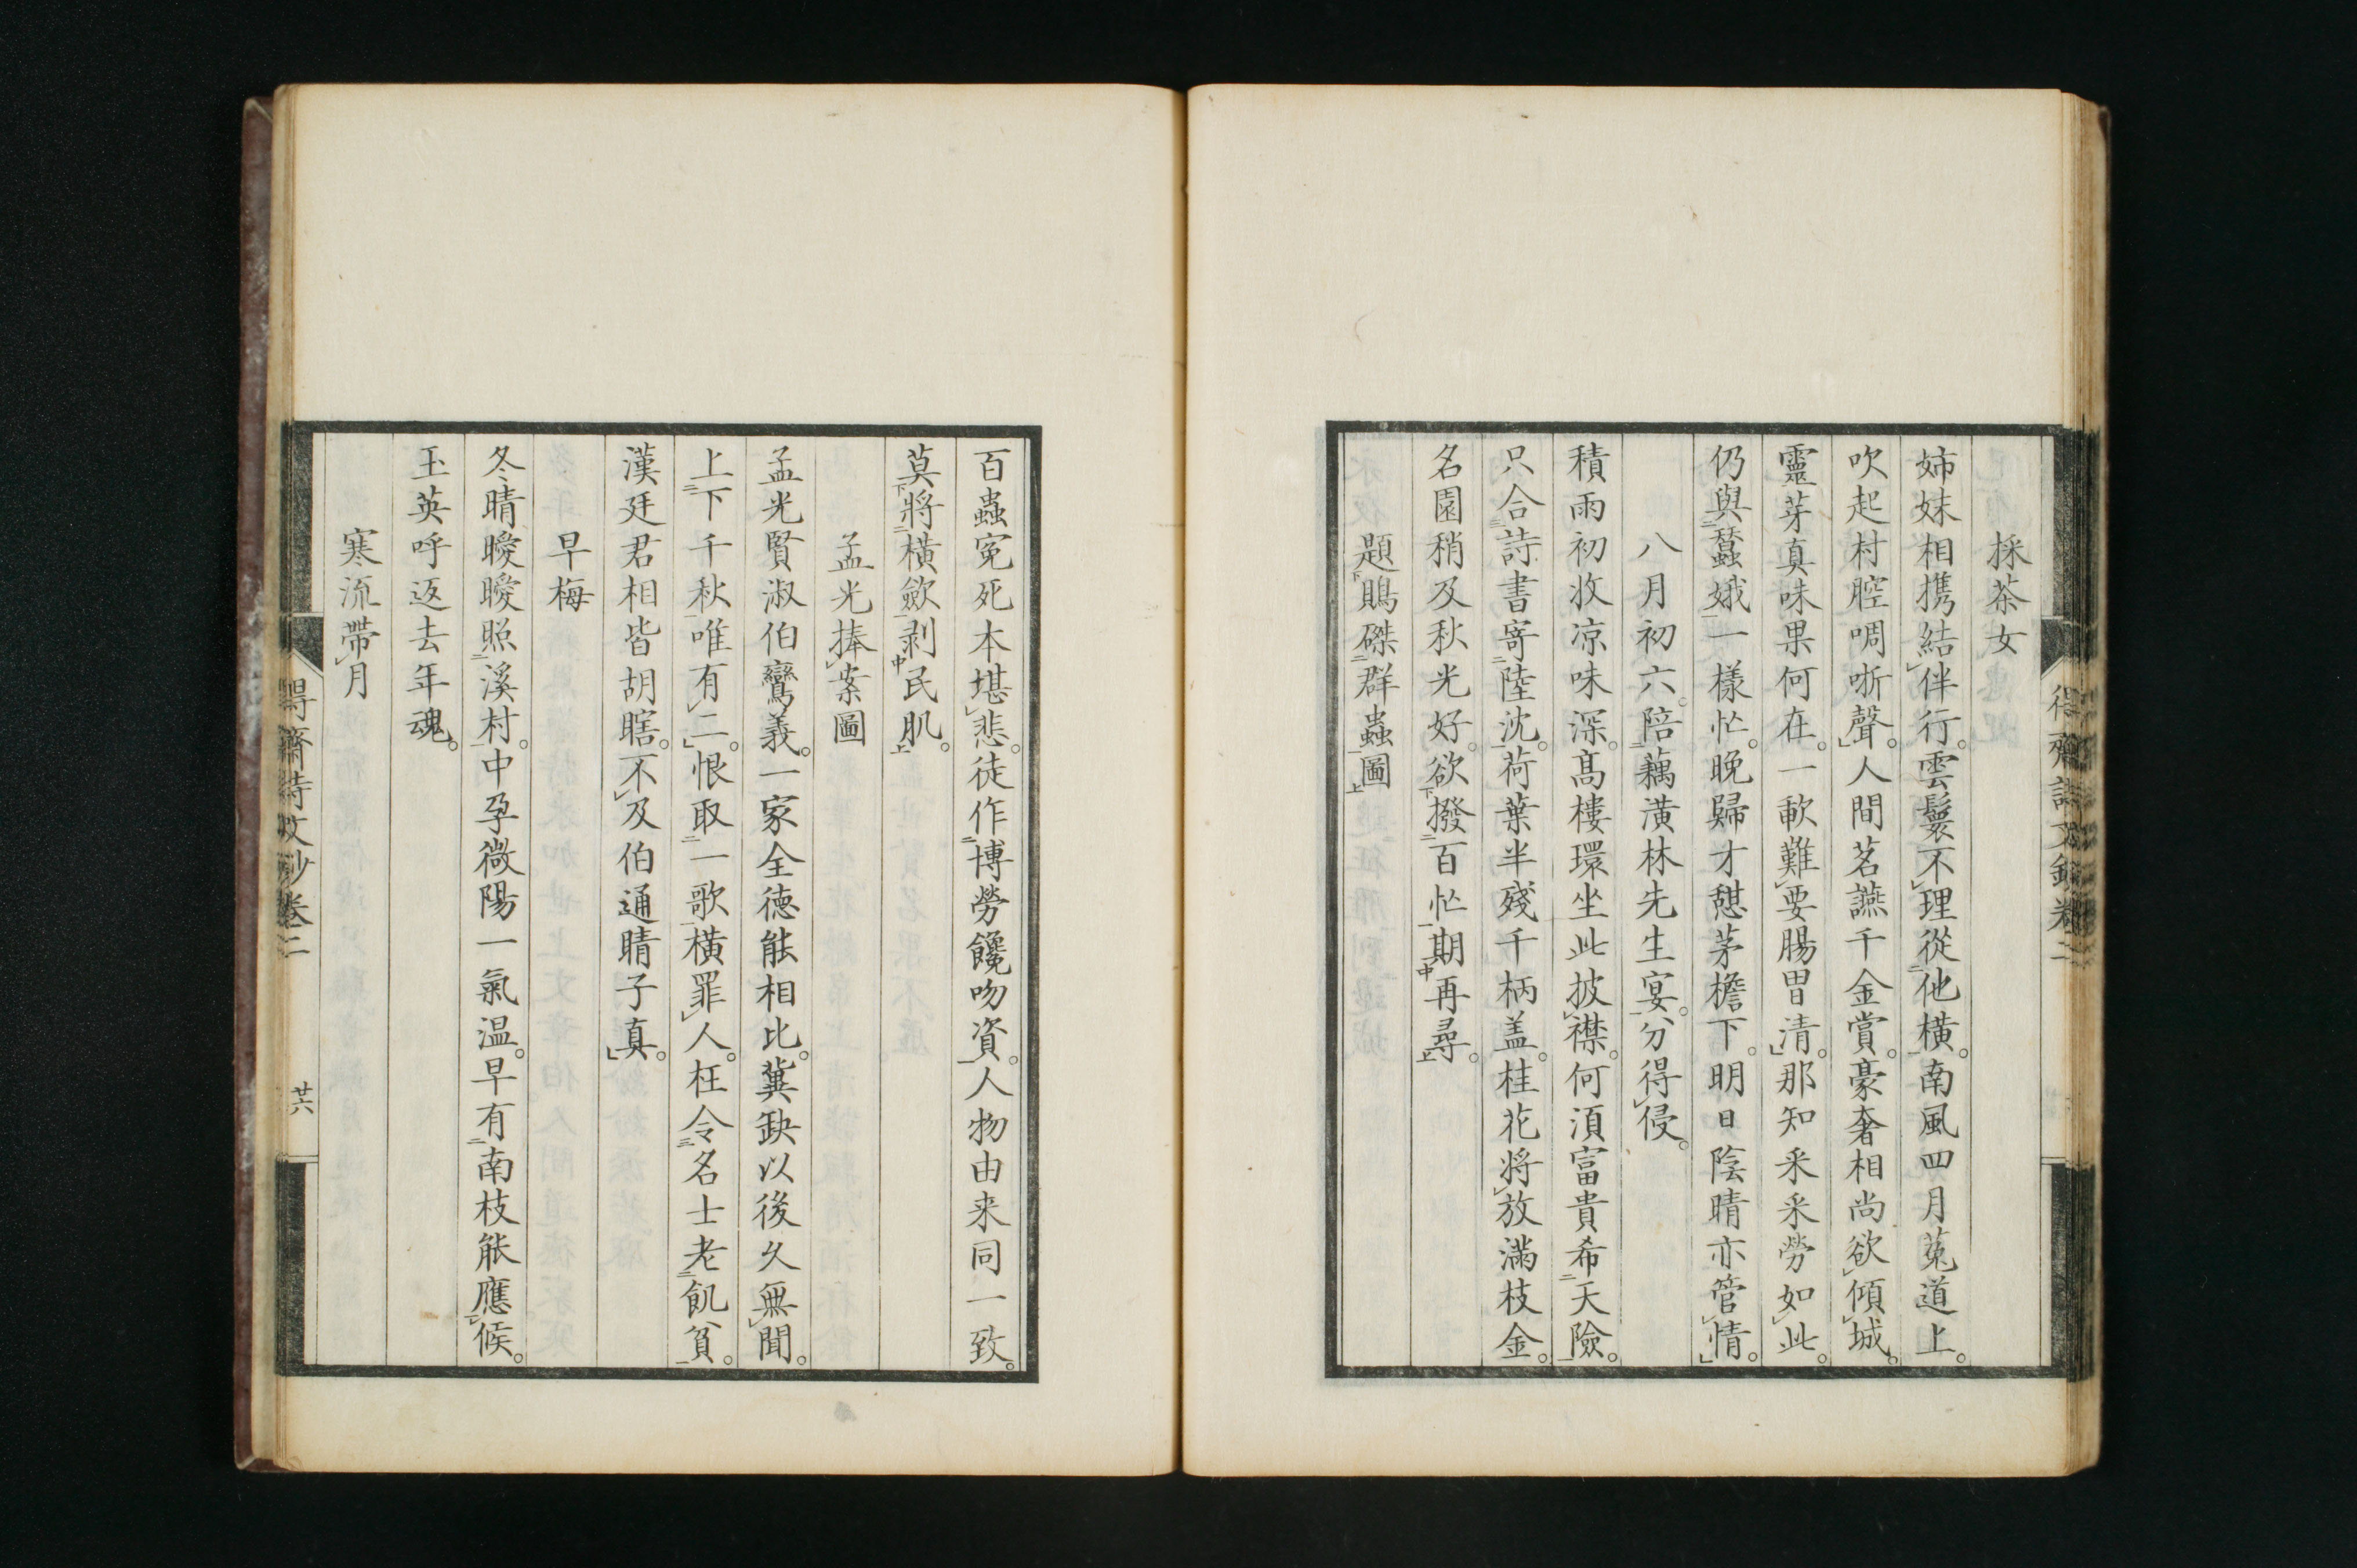 採茶女
姉妹相携結伴行。雲鬟不理從他橫。南風四月菟道上。
吹起村腔啁哳聲。人間茗讌千金賞。豪奢相尚欲傾城。
靈芽真味果何在。一歃難要腸胃清。那知采采勞如此。
仍與蠶娥一樣忙。晚歸才憩茅檐下。明日陰晴亦管情。
八月初六。陪藕潢林先生宴。分得侵。
積雨初收凉味深。高樓環坐此披襟。何須富貴希天險。
只合詩書寄陸沈。荷葉半殘千柄盖。桂花將放滿枝金。
名園稍及秋光好。欲撥百忙期再尋。
題鵙磔群蟲圖
百蟲冤死本堪悲。徒作博勞饞吻資。人物由来同一致。
莫將橫歛剥民肌。
孟光捧案圖
孟光賢淑伯鸞義。一家全德能相比。冀缺以後久無聞。
上下千秋唯有二。恨取一歌橫罪人。枉令名士老飢貧。
漢廷君相皆胡瞎。不及伯通睛子真。
早梅
冬晴曖曖照溪村。中孕微陽一氣温。早有南枝能應候。
玉英呼返去年魂。
寒流帶月
得齋詩文鈔卷二
廿六